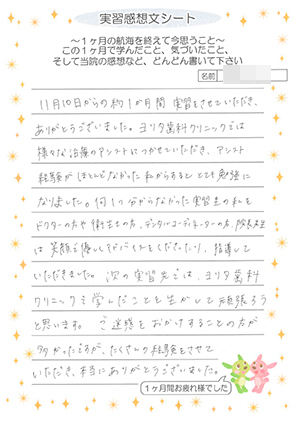 実習感想文シート
～1ヶ月の航海を終えて今思うこと～
この1ヶ月で学んだこと、気づいたこと、
そして当院の感想など、どんどん書いて下さい
名前
11月10日からの約1か月間 実習をさせていただき、
ありがとうございました。ヨリタ歯科クリニックでは
様々な治療のアシストにつかせていただき、アシスト
経験がほとんどなかった私からすると とても勉強に
なりました。何1つ分からなかった実習生の私を
ドクターの方や衛生士の方、デンタルコーディネーターの方、院長先生
は笑顔で優しくアドバイスをくださったり、指導して
いただきました。次の実習先では、ヨリタ歯科
クリニックで学んだことを生かして頑張ろう
と思います。ご迷惑をおかけすることの方が
多かったですが、たくさんの経験をさせて
いただき、本当にありがとうございました。
1ヶ月間お疲れ様でした